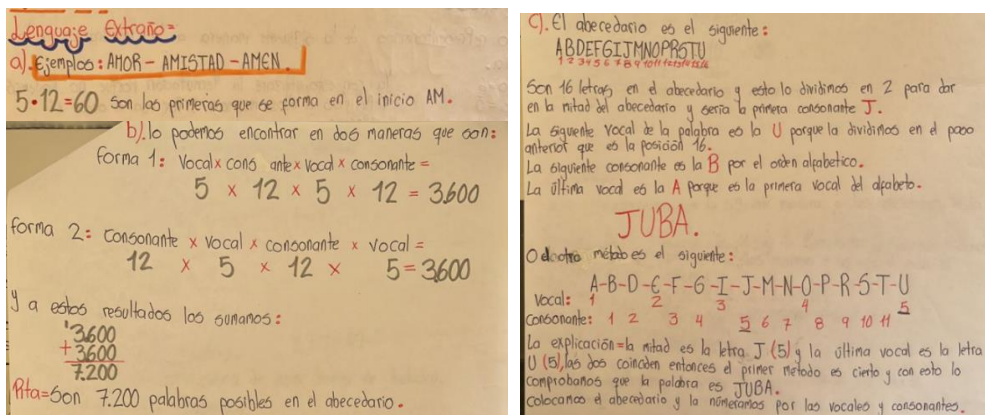 Lenguaje Extraño=
a). Ejemplos: AMOR - AMISTAD - AMEN.
5•12=60 son las primeras que se forma en el inicio AM.
b). lo podemos encontrar en dos maneras que son:
forma 1: Vocal x cons ante x vocal x consonante =
5 x 12 x 5 x 12 = 3.600
forma 2: consonante x vocal x consonante x vocal =
12 x 5 x 12 x 5 = 3.600
y a estos resultados los sumamos:
1
3.600
+ 3.600
7.200
Rta= Son 7.200 palabras posibles en el abecedario.
c). El abecedario es el siguiente:
ABDEFGIJMNOPRSTU
1 2 3 4 5 6 7 8 9 10 11 12 13 14 15 16
Son 16 letras en el abecedario y esto lo dividimos en 2 para dar
en la mitad del abecedario y sería la primera consonante J.
La siguiente vocal de la palabra es la U porque la dividimos en el paso
anterior que es la posición 16.
La siguiente consonante es la B por el orden alfabetico.
La última vocal es la A porque es la primera vocal del alfabeto.
JUBA.
O el otro método es el siguiente:
A-B-D-E-F-G-I-J-M-N-O-P-R-S-T-U
Vocal: 1 2 3 4 5
Consonante: 1 2 3 4 5 6 7 8 9 10 11
La explicación= la mitad es la letra J (5) y la última vocal es la letra
U (5), las dos coinciden entonces el primer metodo es cierto y con esto lo
comprobamos que la palabra es JUBA.
Colocamos el abecedario y la númeramos por las vocales y consonantes.